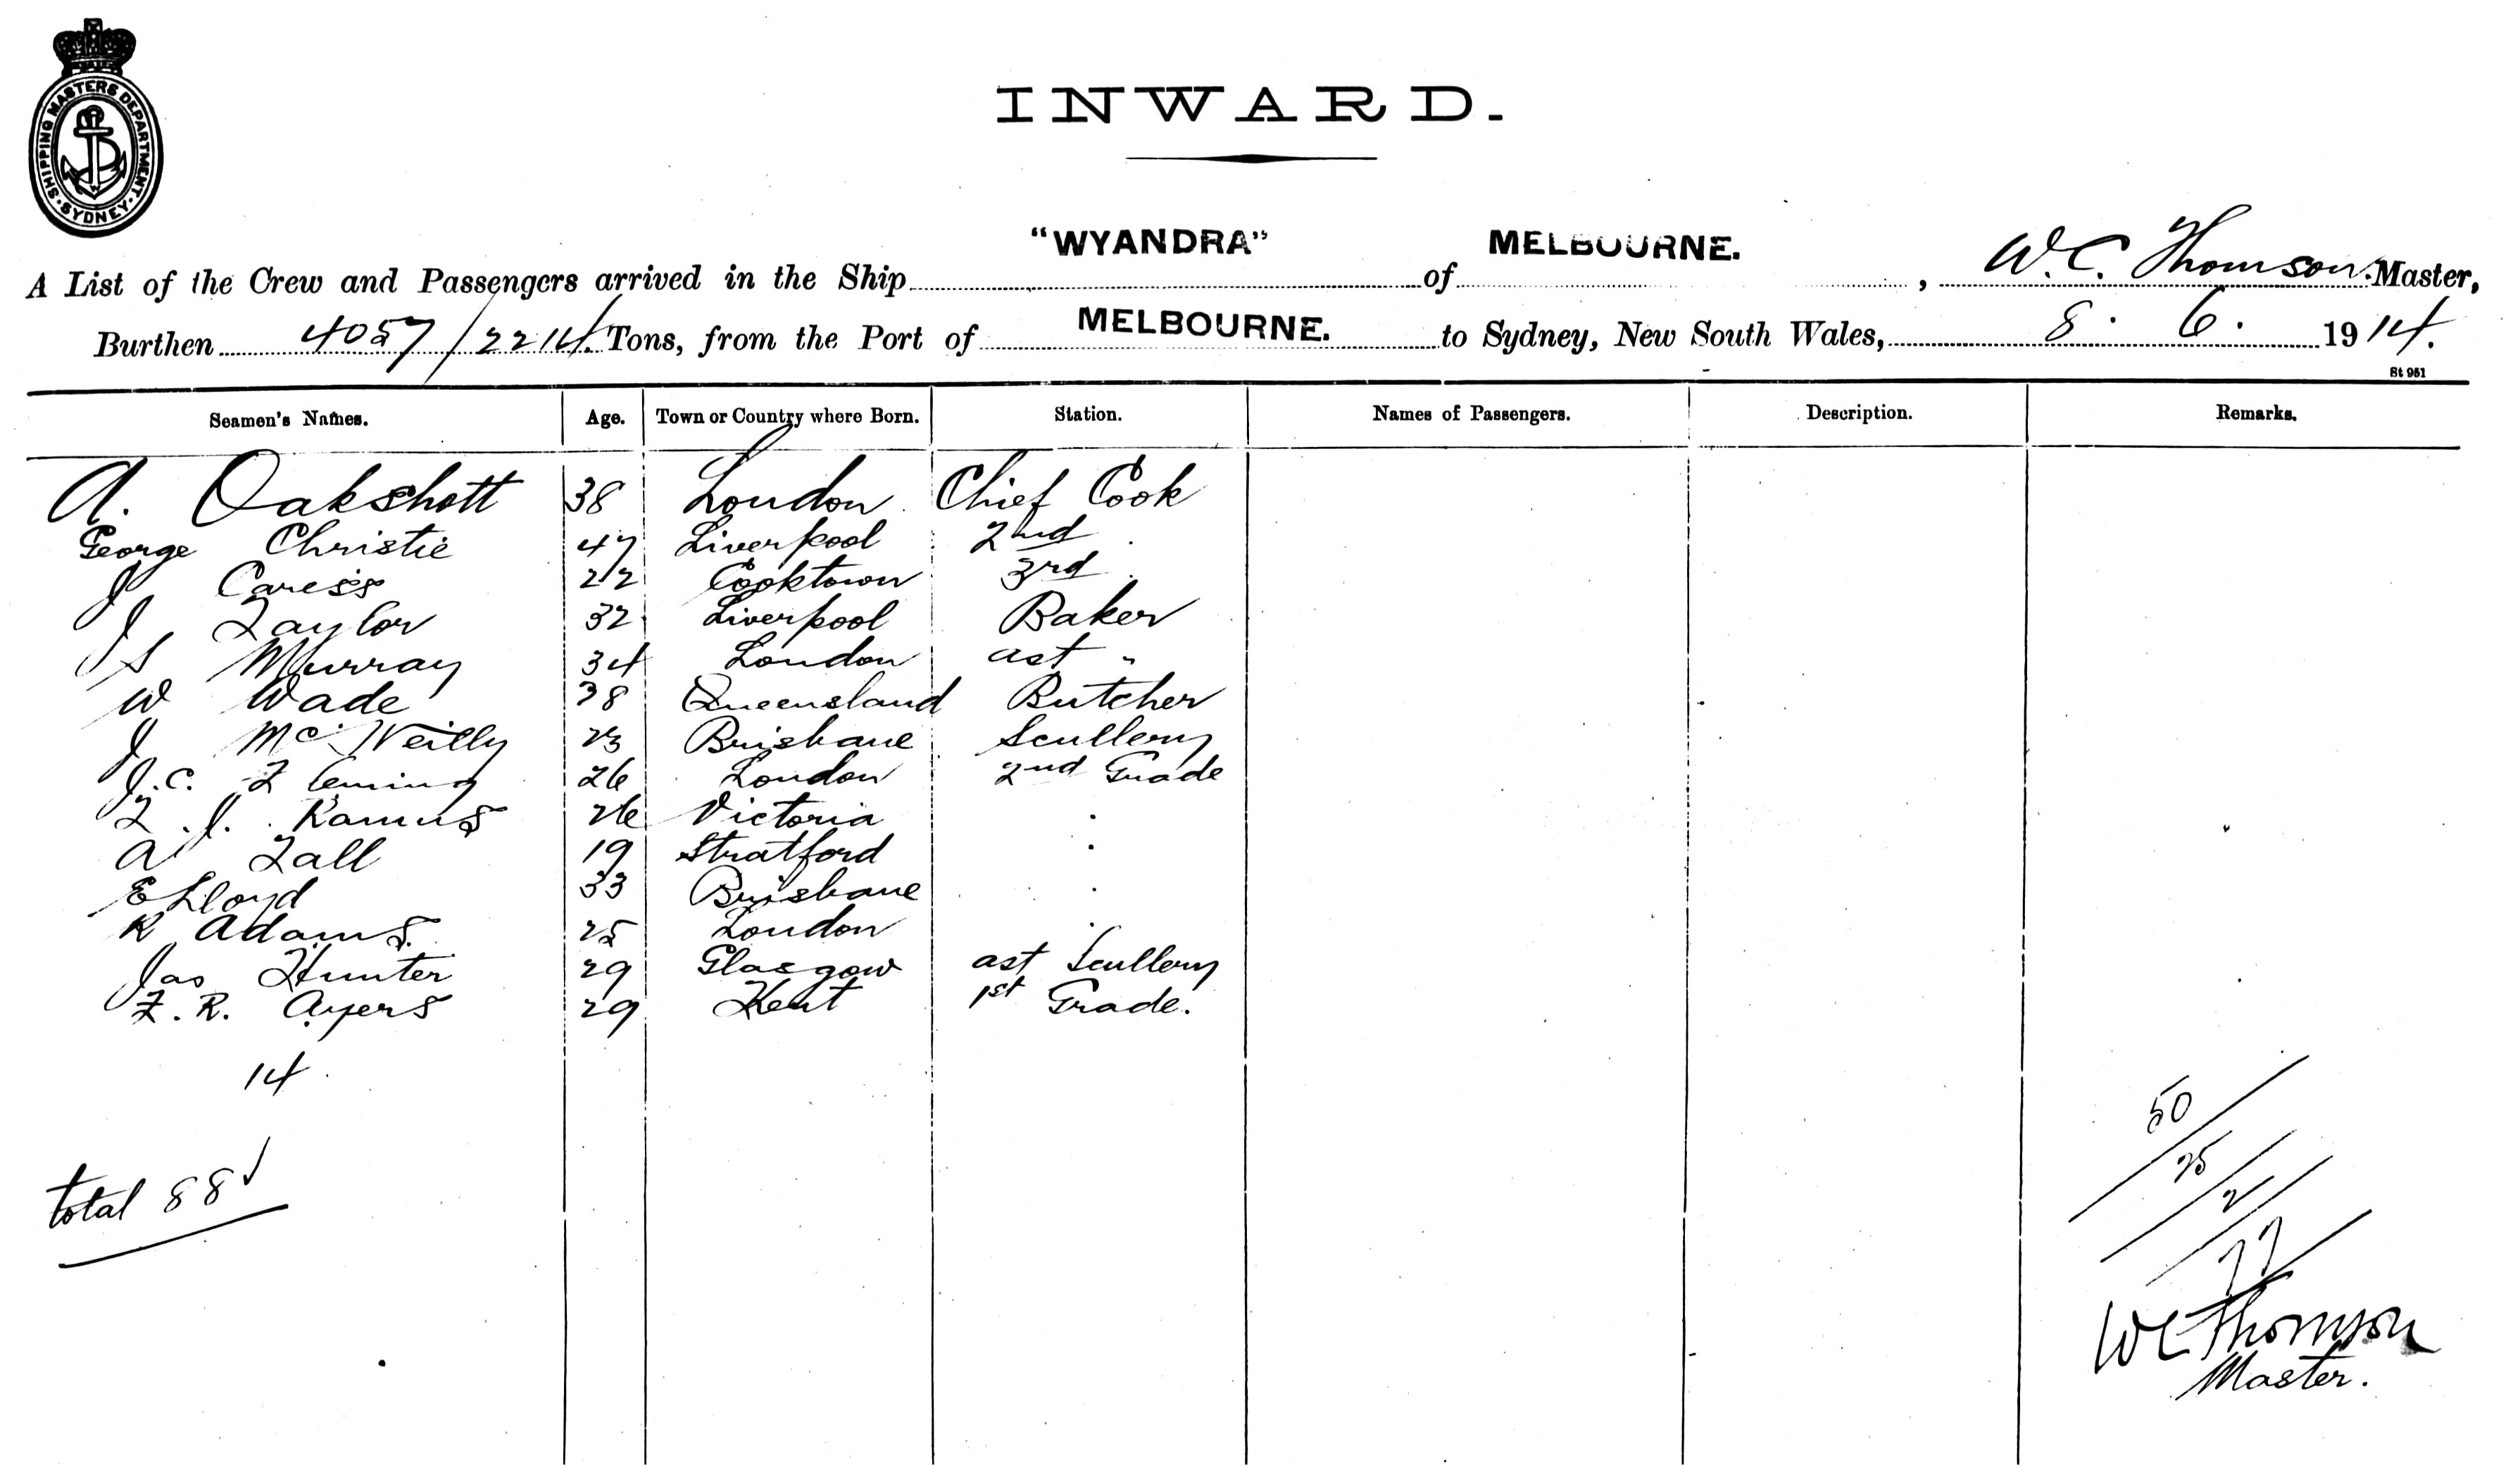 SHIPPING MASTERS DEPARTMENT · SYDNEY ·
INWARD.
A List of the Crew and Passengers arrived in the Ship "WYANDRA" of MELBOURNE. , W. C. Thomson. Master,
Burthen 4057/2214. Tons, from the Port of MELBOURNE. to Sydney, New South Wales, 8. 6. 1914.
St 951
Seamen's Names. Age. Town or Country where Born. Station. Names of Passengers. Description. Remarks.
A. Oakshott 38 London Chief Cook
George Christie 47 Liverpool 2nd "
J Caress 22 Cooktown 3rd "
J Taylor 32 Liverpool Baker
J S Murray 34 London ast "
W Wade 38 Queensland Butcher
J McNeilly 23 Brisbane Scullery
J. C. Fleming 26 London 2nd Grade
F. J. Ramus 26 Victoria "
A Fall 19 Stratford "
E Lloyd 33 Brisbane "
R Adams 25 London "
Jas Hunter 29 Glasgow ast Scullery
F. R. Ayers 29 Kent 1st Grade.
14
total 88
50
25
2
77
W C Thomson
Master.